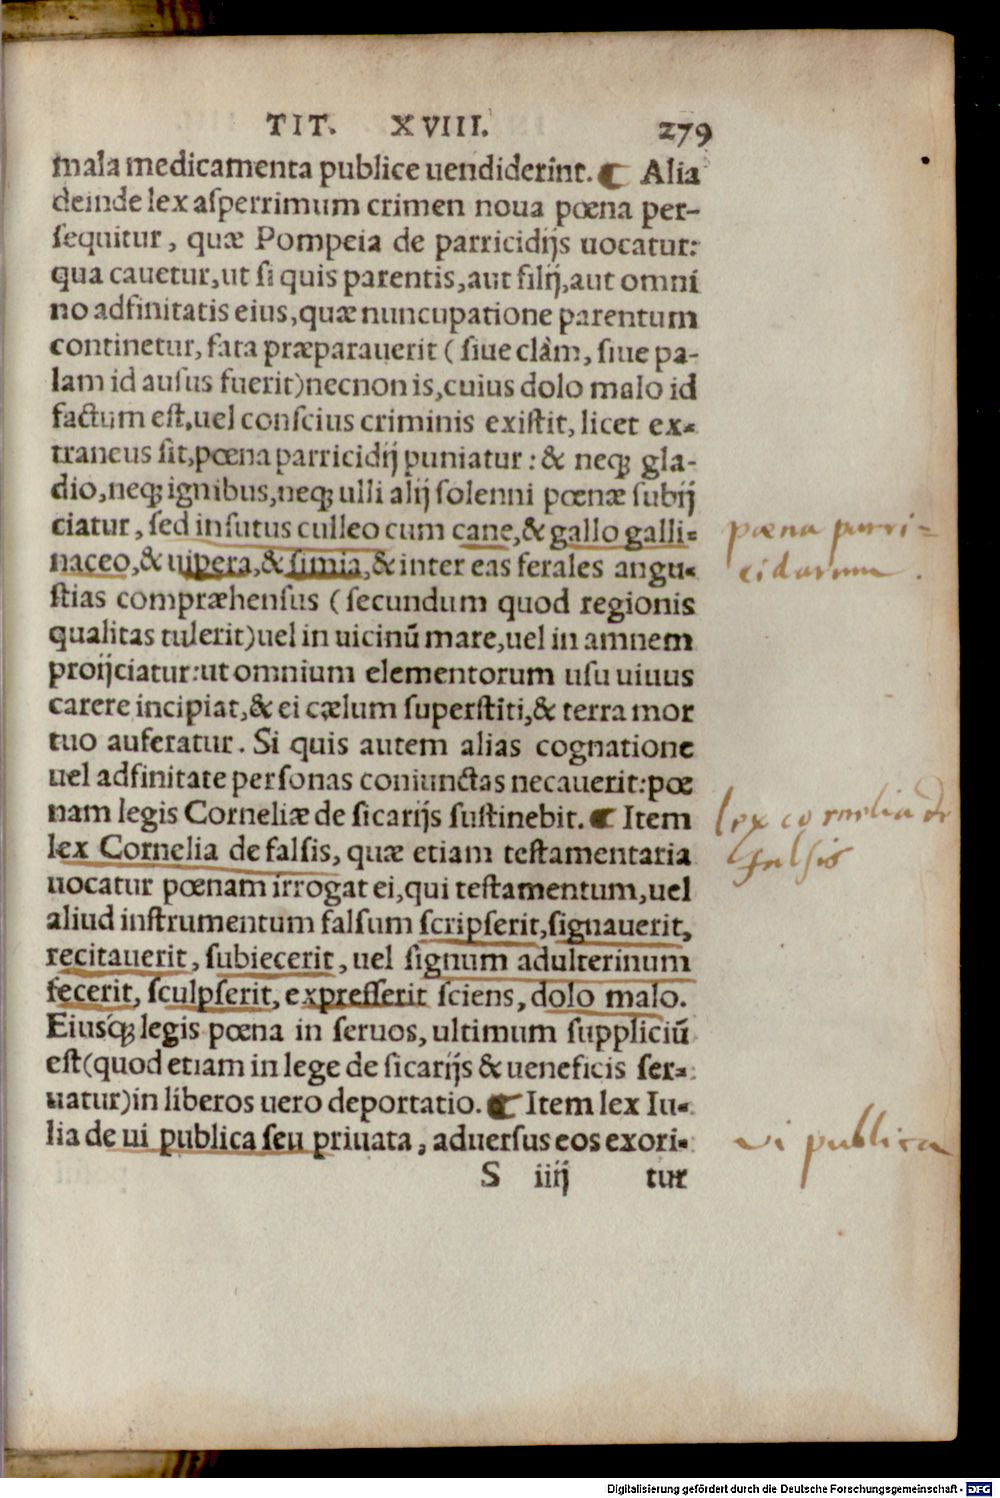 TIT. XVIII. 279
mala medicamenta publice uendiderint. ¶ Alia
deinde lex aſperrimum crimen noua pœna per-
ſequitur, quæ Pompeia de parricidijs uocatur:
qua cauetur, ut ſi quis parentis, aut filij, aut omni
no adfinitatis eius, quæ nuncupatione parentum
continetur, fata præparauerit (ſiue clàm, ſiue pa-
lam id auſus fuerit) necnon is, cuius dolo malo id
factum eſt, uel conſcius criminis exiſtit, licet ex-
traneus ſit, pœna parricidij puniatur: & neq; gla-
dio, neq; ignibus, neq; ulli alij ſolenni pœnæ ſubij
ciatur, ſed inſutus culleo cum cane, & gallo galli-
naceo, & uipera, & ſimia, & inter eas ferales angu-
ſtias compræhenſus (ſecundum quod regionis
qualitas tulerit) uel in uicinū mare, uel in amnem
proijciatur: ut omnium elementorum uſu uiuus
carere incipiat, & ei cælum ſuperſtiti, & terra mor
tuo auferatur. Si quis autem alias cognatione
uel adfinitate perſonas coniunctas necauerit: pœ
nam legis Corneliæ de ſicarijs ſuſtinebit. ¶ Item
lex Cornelia de falſis, quæ etiam teſtamentaria
uocatur pœnam irrogat ei, qui teſtamentum, uel
aliud inſtrumentum falſum ſcripſerit, ſignauerit,
recitauerit, ſubiecerit, uel ſignum adulterinum
fecerit, ſculpſerit, expreſſerit ſciens, dolo malo.
Eiusq́; legis pœna in ſeruos, ultimum ſuppliciū
eſt (quod etiam in lege de ſicarijs & ueneficis ſer-
uatur) in liberos uero deportatio. ¶ Item lex Iu-
lia de ui publica ſeu priuata, aduerſus eos exori-
S iiij tur
pœna parri-
cidarum.
lex cornelia de
falsis
vi publica
Digitalisierung gefördert durch die Deutsche Forschungsgemeinschaft - DFG